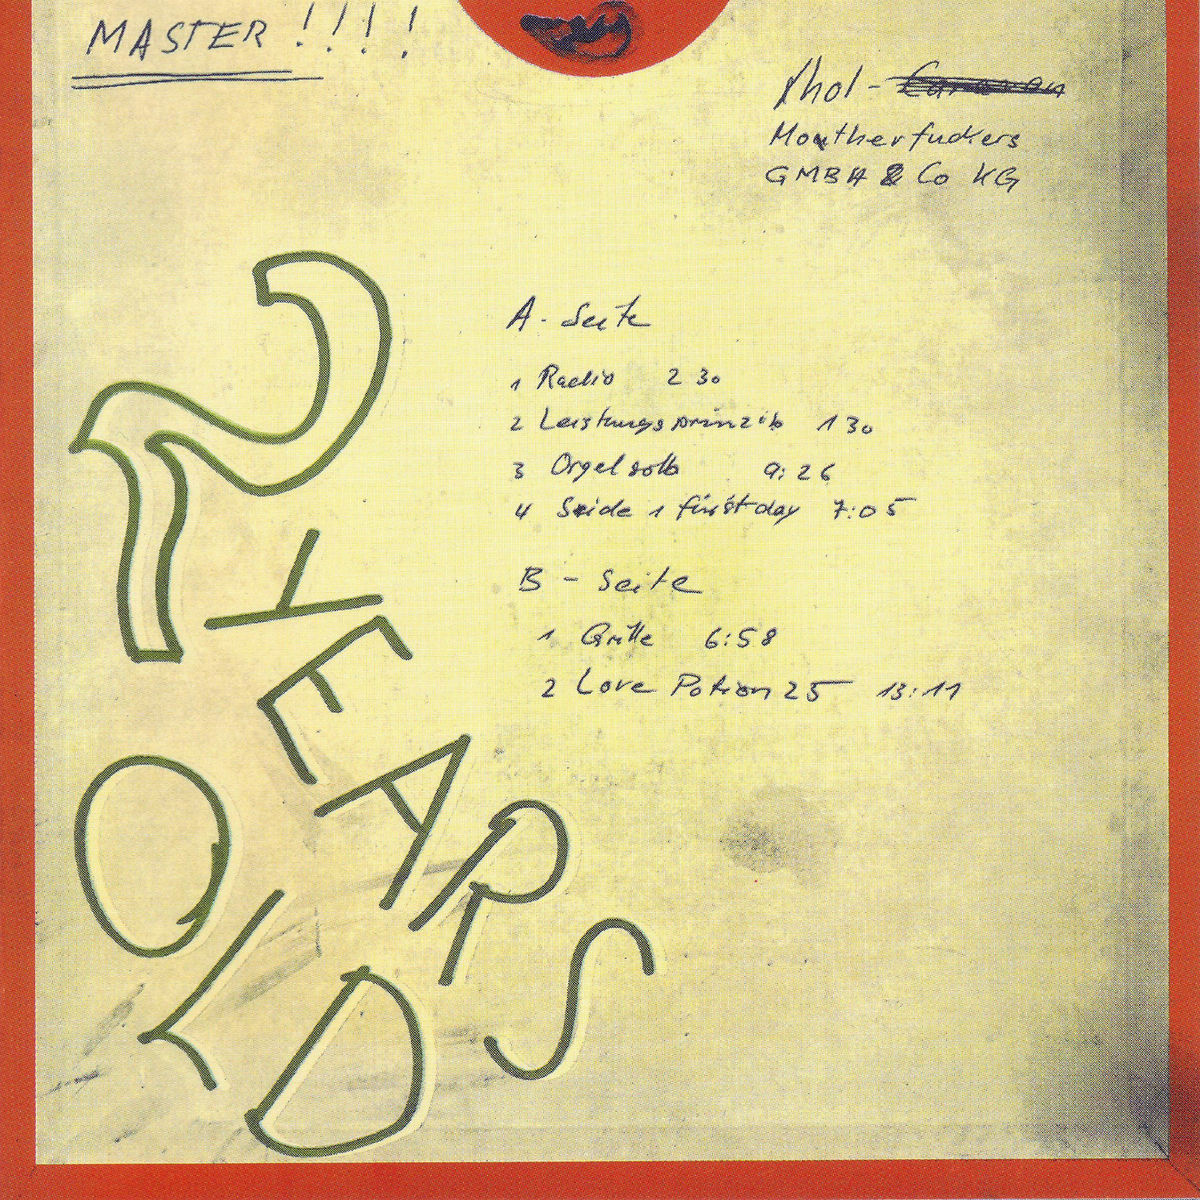 MASTER !!!!
Xhol - Caravan
Moutherfuckers
GMBH & Co KG
A - Seite
1 Radio 2 30
2 Leistungsprinzib 1 30
3 Orgelsolo 9:26
4 Seide 1 first day 7:05
B - Seite
1 Grille 6:58
2 Love Potion 25 13:11
2 YEARS
OLD